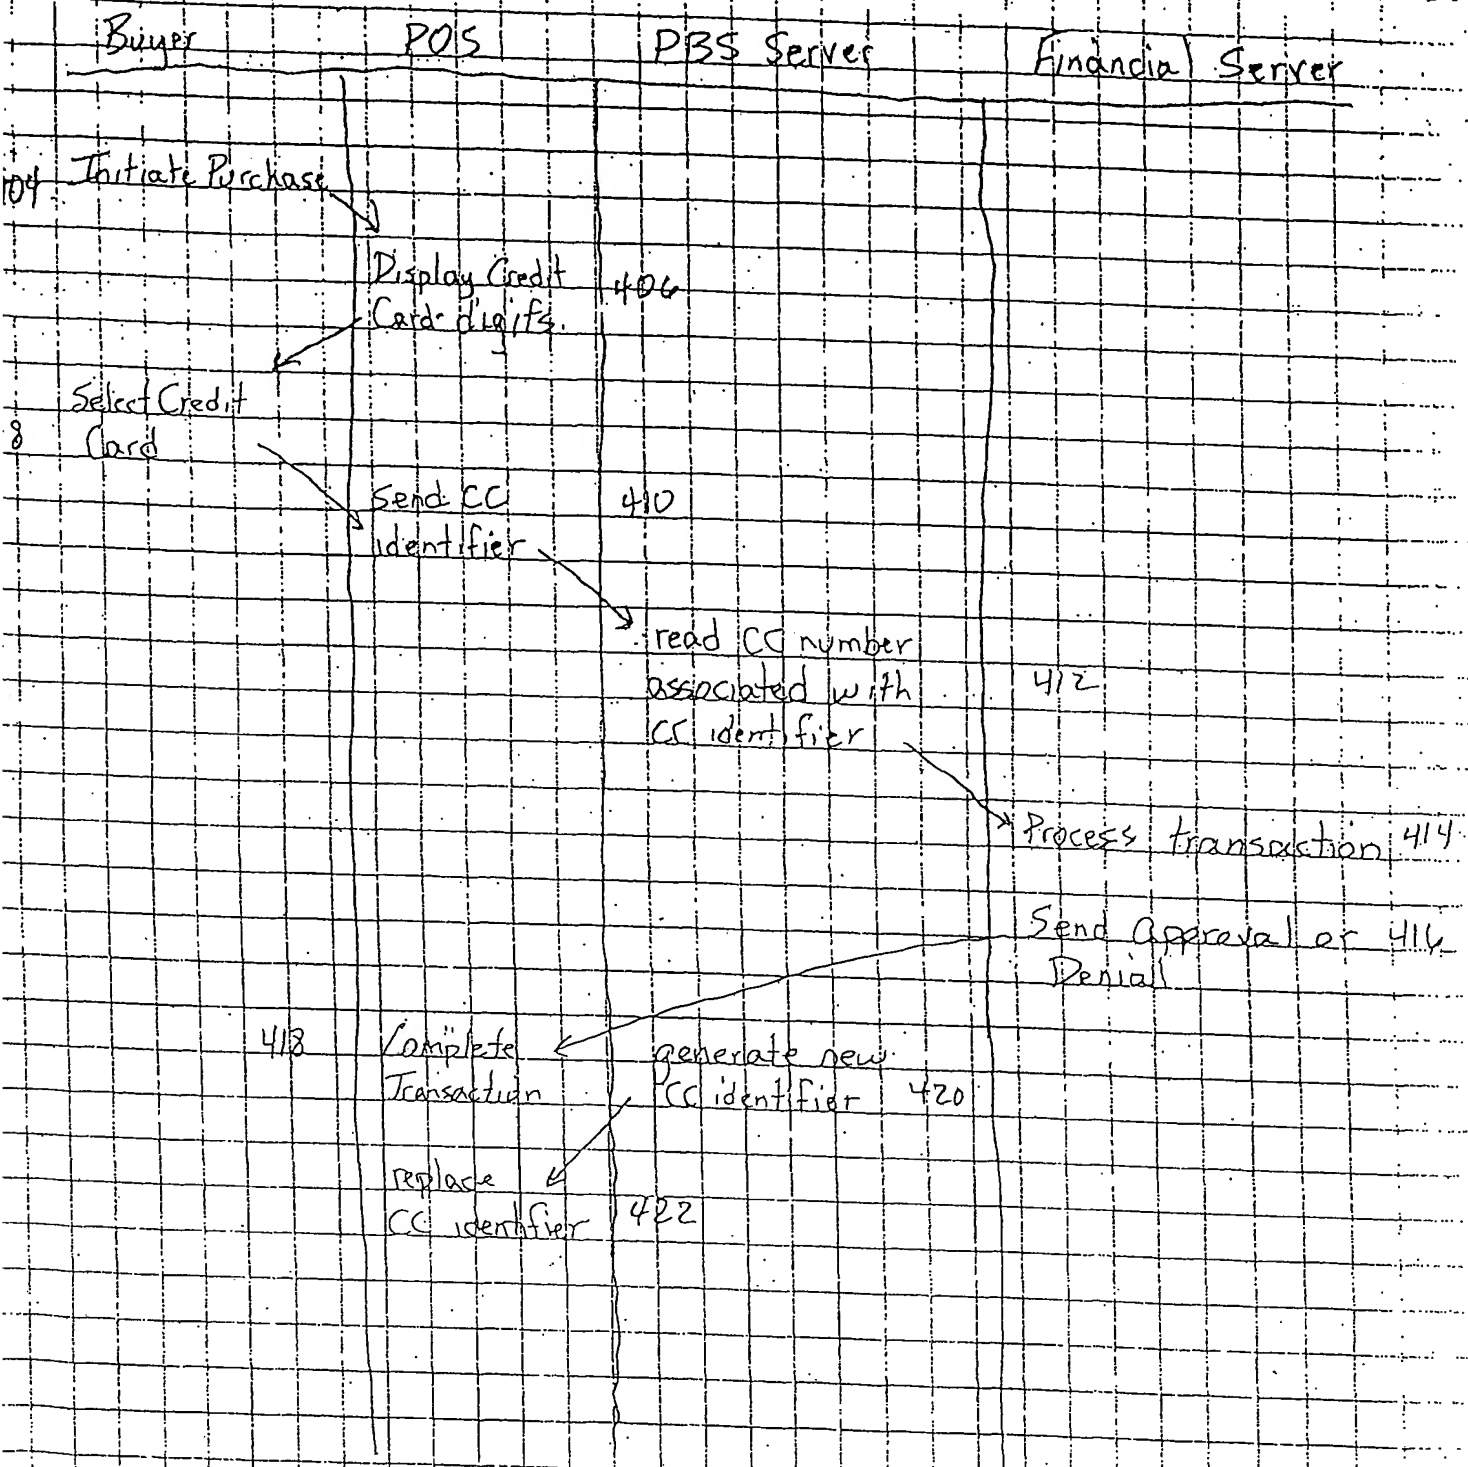 Buyer POS PBS Server Financial Server
104 Initiate Purchase
Display Credit 406
Card digits.
Select Credit
8 Card
Send CC 410
identifier
read CC number
associated with 412
CC identifier
Process transaction 414
Send approval or 416
Denial
418 Complete generate new
Transaction CC identifier 420
replace
CC identifier 422